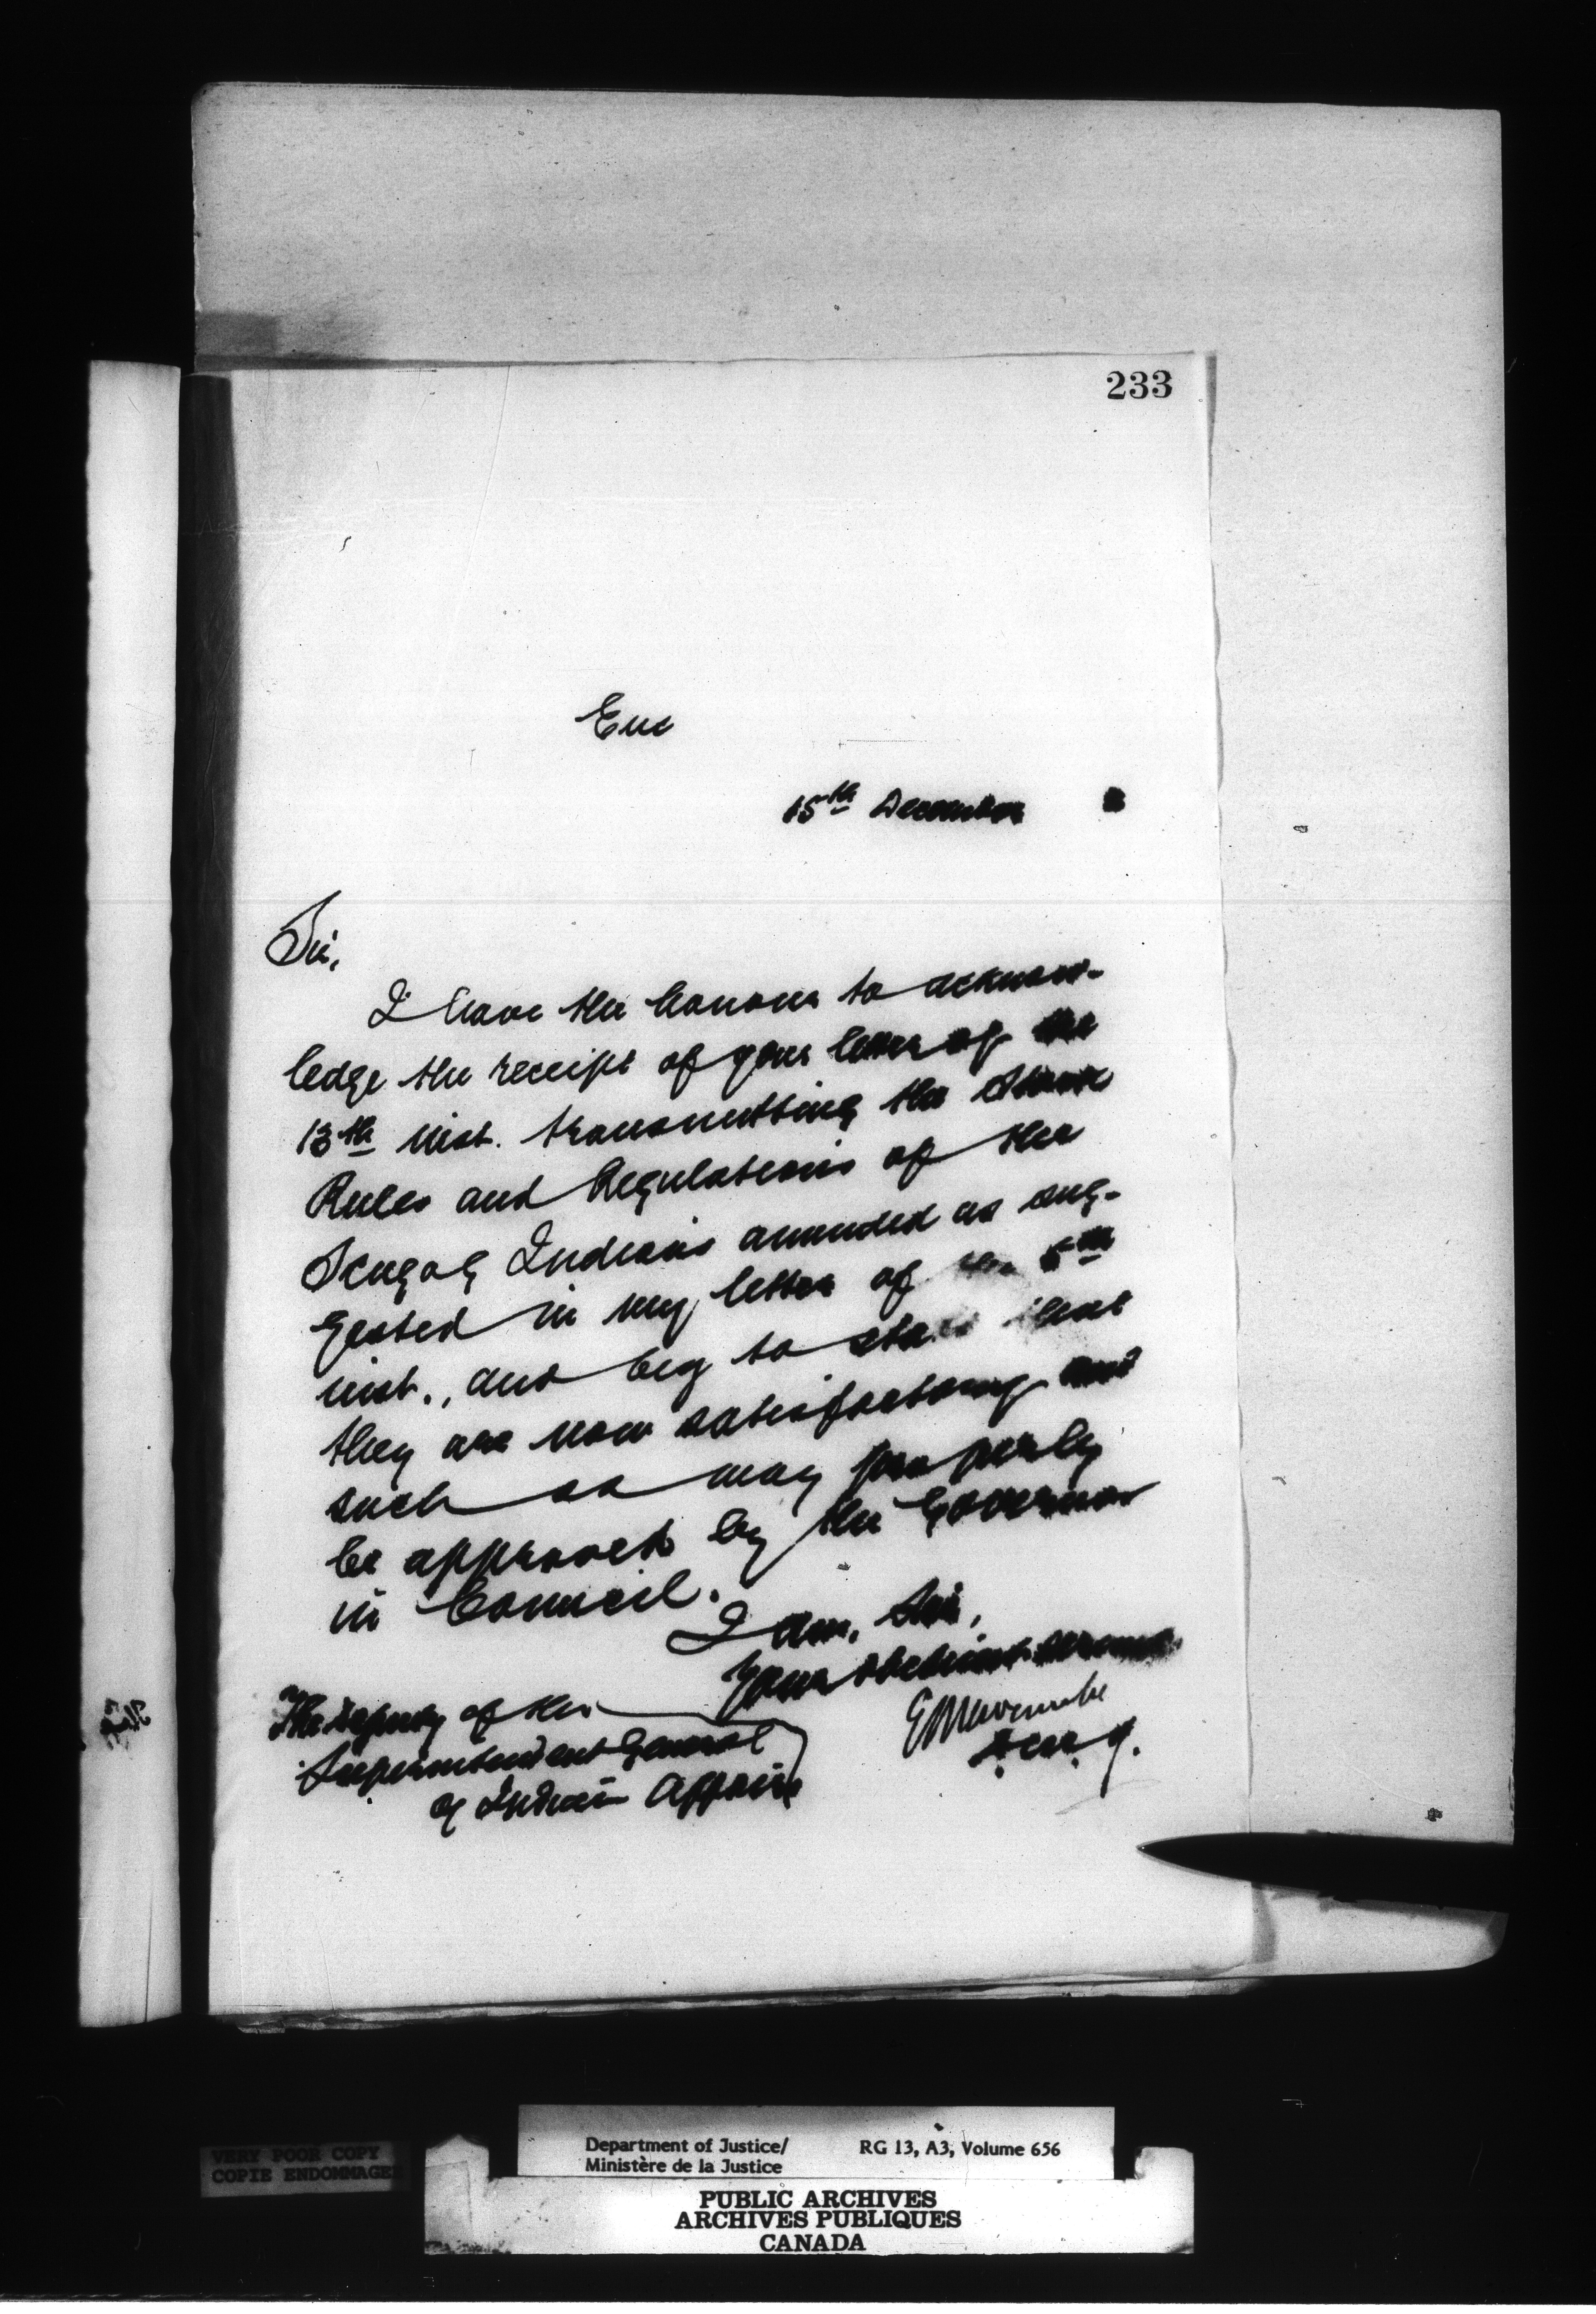 233
Enc
15th December
Sir,
I have the honour to acknow-
ledge the receipt of your letter of the
13th inst. transmitting the
Rules and Regulations of the
Scugog Indians amended as sug-
gested in my letter of the 5th
inst., and beg to state that
they are now satisfactory and
such as may properly
be approved by the Governor
in Council.
I am, Sir,
Your obedient servant
The Deputy of the
Superintendent General
of Indian Affairs
E L Newcombe
D. M. J.
VERY POOR COPY
COPIE ENDOMMAGEE
Department of Justice/
Ministère de la Justice
RG 13, A3, Volume 656
PUBLIC ARCHIVES
ARCHIVES PUBLIQUES
CANADA